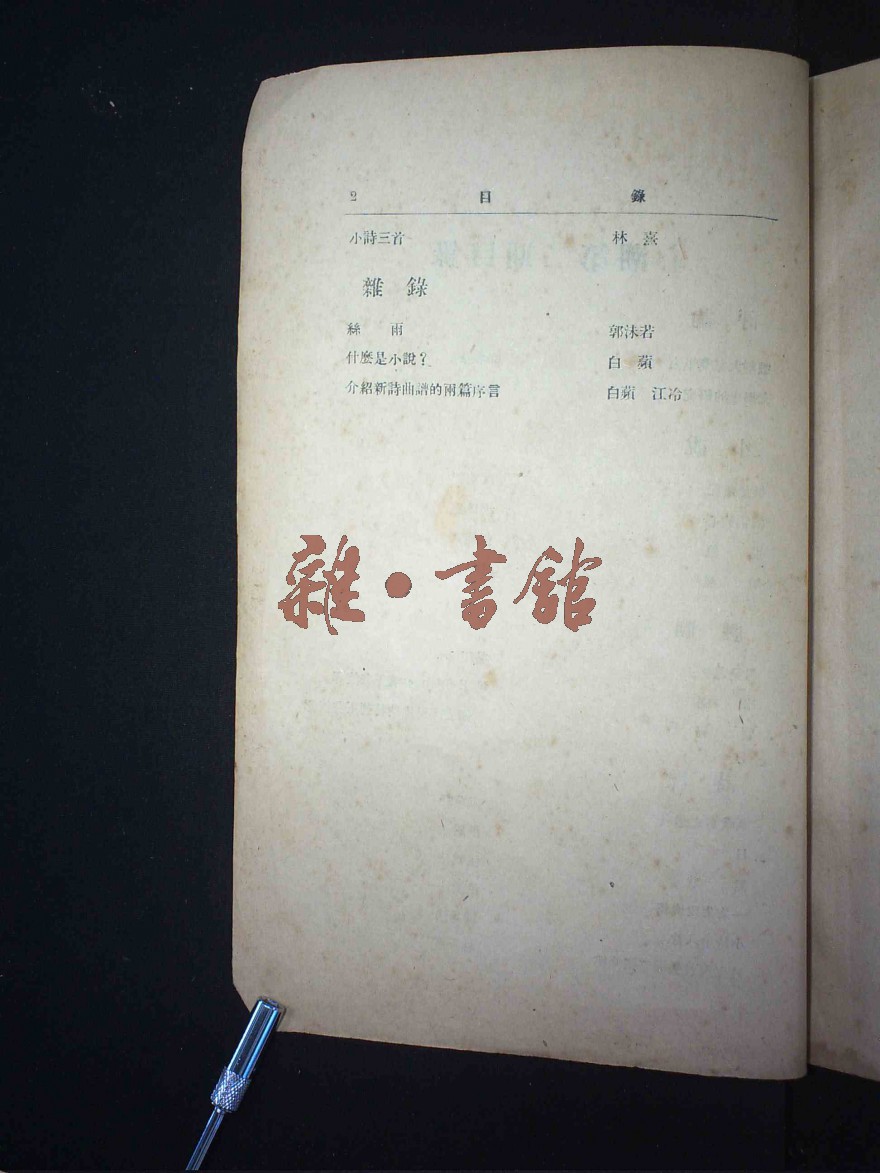 2 目 錄
小詩三首 林 熹
雜 錄
絲 雨 郭沫若
什麼是小說？ 白 蘋
介紹新詩曲譜的兩篇序言 白蘋 江冷
雜·書館